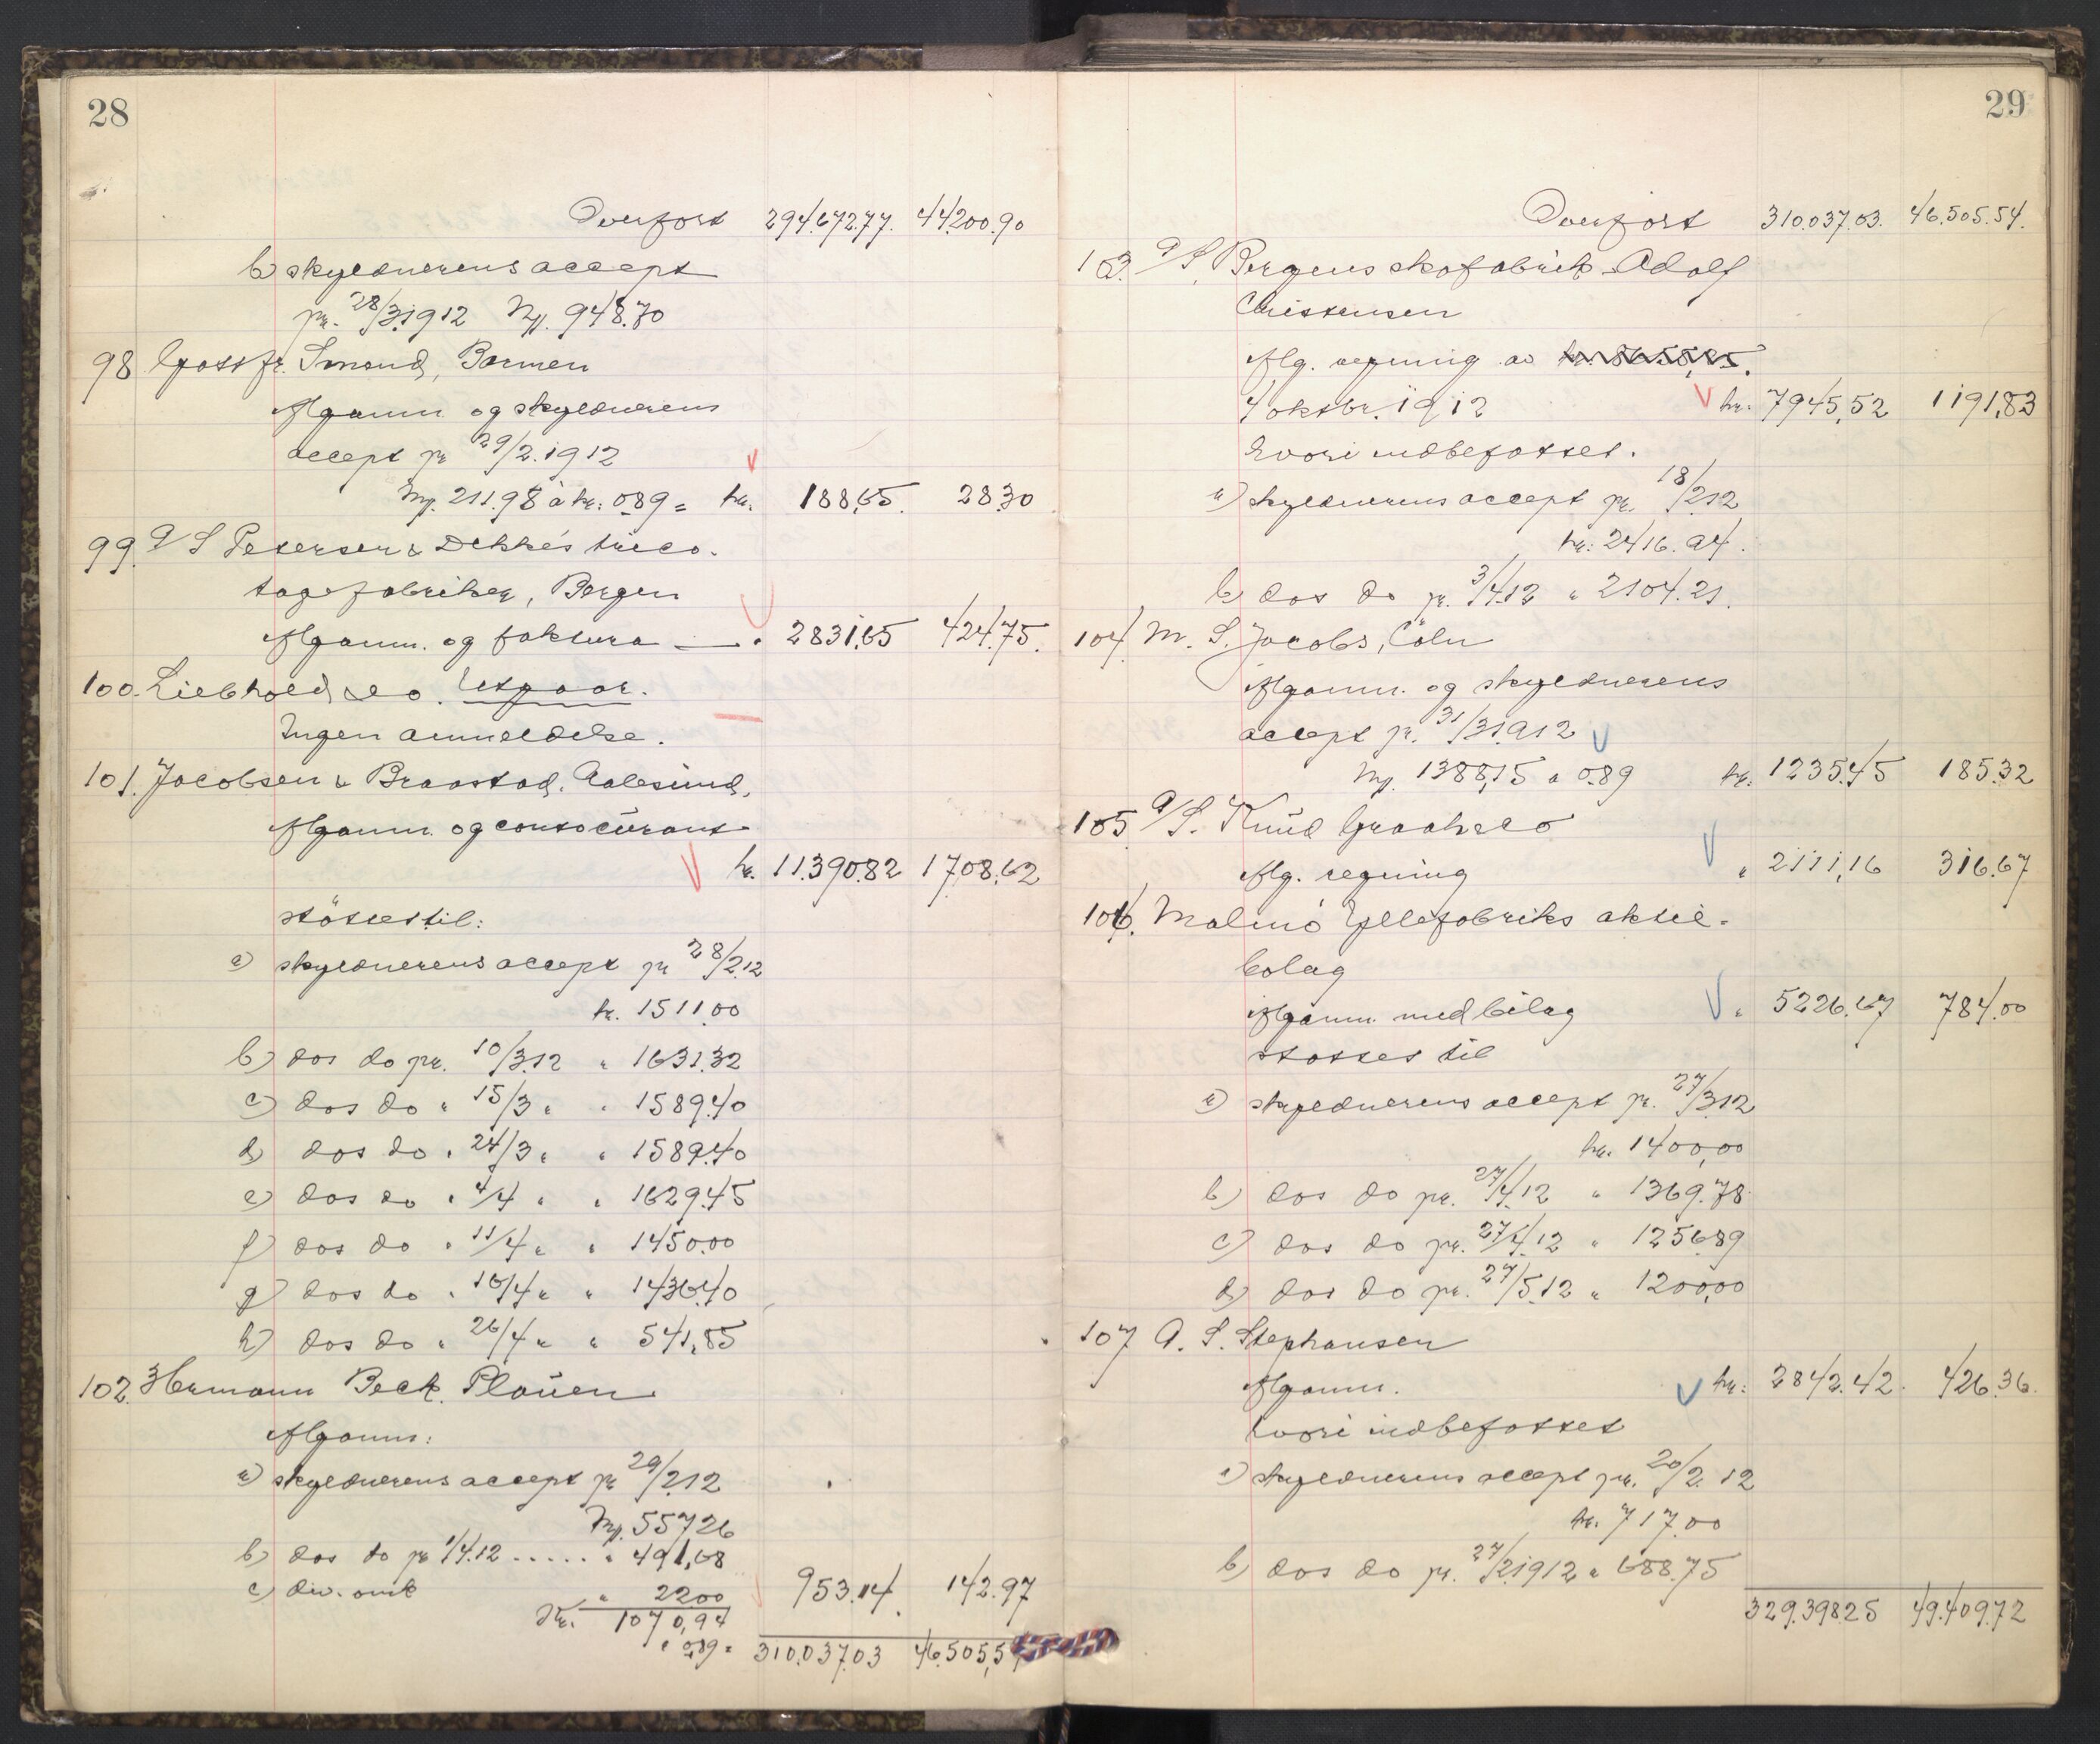 28
Overført 294.672.77. 44.200.90
b) skyldnerens accept
pr. 28/3.1912 Mk. 948.70
98 Gottfr. Smend, Barmen
Afgamm. og skyldnerens
accept pr 29/2.1912
Mk. 211.98 à kr. 0.89 = kr. 188,65. 28.30
99. A/S Petersen & Dekkes trico-
tagefabriker, Bergen
Afgamm. og faktura — " 2831,65 424.75.
100. Liebhold & Co. Utgaar.
Ingen anmeldelse.
101. Jacobsen & Braastad, Aalesund,
Afgamm. og contocurant
kr. 11.390.82 1708,62
støttet til:
a) skyldnerens accept pr 28/2.12
kr. 1511.00
b) dos do pr. 10/3.12 " 1631.32
c) dos do " 15/3 " " 1589.40
d) dos do " 24/3 " " 1589.40
e) dos do " 4/4 " " 1629.45
f) dos do " 11/4 " " 1450.00
g) dos do " 16/4 " " 1436.40
h) dos do " 26/4 " " 541,85
102. Hermann Beck. Plauen
Afgamm:
a) skyldnerens accept pr 29/2.12
Mk. 557.26
b) dos do pr 1/4.12 ..... " 491,68
c) div. omk " 22.00 953.14. 142.97
Mk. 1070,94
à 0,89 = 310.037.03 46.505,54
29
Overført 310.037.03. 46.505.54.
103. A/S. Bergens skofabrik Adolf
Christensen
Afg. regning av kr. 8658,85.
4 oktbr. 1912 kr. 7945,52 1191,83
hvori indbefattet.
a) skyldnerens accept pr. 18/2.12
kr. 2416.94.
b) dos do pr. 3/4.12 " 2104.21.
104. M. S. Jacobs, Cöln
Afgamm. og skyldnerens
accept pr. 31/3.1912
Mk. 1388,15 à 0.89 kr. 1235.45 185.32
105. A/S. Knud Graah & Co
Afg. regning " 2111,16 316.67
106. Malmö Yllefabriks aktie-
bolag
Afgamm. med bilag " 5226.67 784.00
støttes til
a) skyldnerens accept pr. 27/3.12
kr. 1400,00
b) dos do pr. 27/4.12 " 1369.78
c) dos do pr. 27/4.12 " 1256.89
d) dos do pr. 27/5.12 " 1200,00
107 A. S. Stephansen
Afgamm. kr: 2842.42. 426.36.
hvori indbefattet
a) skyldnerens accept pr. 20/2. 12
kr. 717.00
b) dos do pr. 27/2.1912 " 688.75
329.398.25 49.409.72